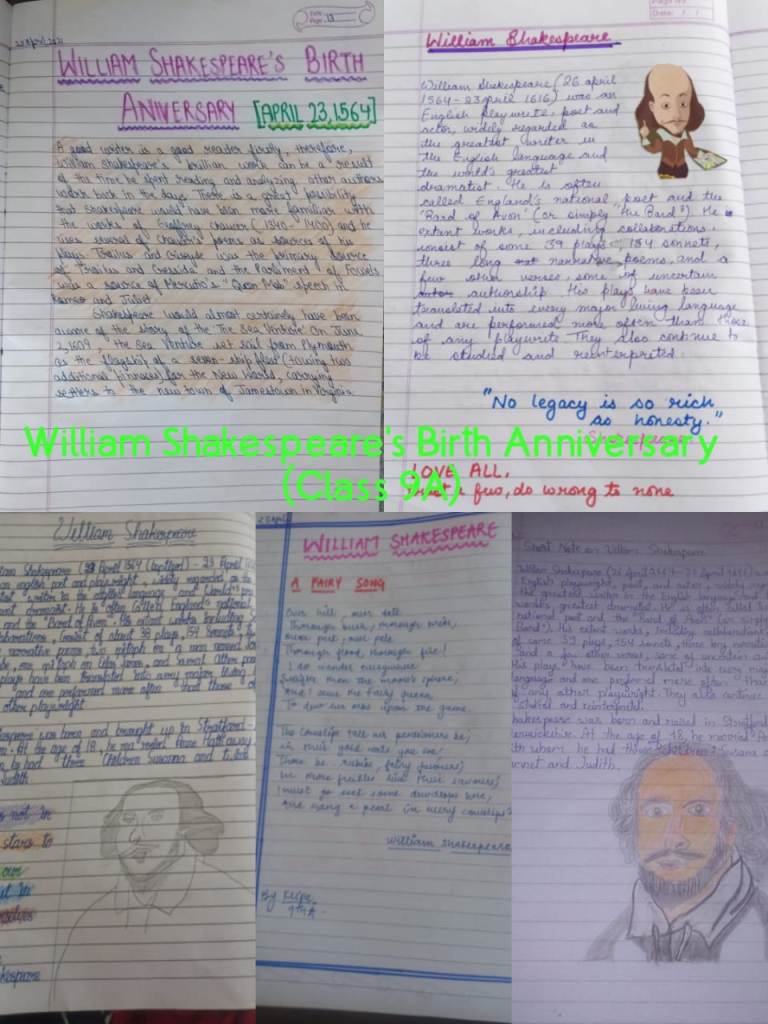 Date:
Page: 13
WILLIAM SHAKESPEARE'S BIRTH
ANIVERSARY [APRIL 23,1564]
A good writer is a good reader firstly, therefore,
William Shakespeare's brillian work can be a result
of the time he spent reading and analyzing other authors
work back in the days. There is a great possibility
that Shakespeare would have been more familiar with
the works of Geoffrey chaucer (1340-1400) and he
uses several of Chaucer's poems as sources of his
plays. Troilus and Criseyde was the primary source
of Troilus and Cressida and the Parliment of Fowels
was a source of Mercutio's "Queen Mab" speech in
Romeo and Juliet.
Shakespeare would almost certainly have been
aware of the story of the The Sea Venture on June
2,1609, the Sea Venture set sail from Plymouth
as the flagship of a seven-ship fleet (towing two
additional pinnaces) for the New World, carrying
settlers to the new town of Jamestown in Virginia
Date: / /
William Shakespeare
William Shakespeare (26 april
1564-23 april 1616) was an
English playwrite, poet and
actor, widely regarded as
the greatest writer in
the English language and
the world's greatest
dramatist. He is often
called England's national poet and the
"Bard of Avon" (or simply "the Bard"). He
extent works, including collaborations,
consist of some 39 plays, 154 sonnets,
three long narrative poems, and a
few other verses, some of uncertain
authorship. His plays have been
translated into every major living language
and are performed more often than those
of any playwrite. They also continue to
be studied and reinterpreted.
"No legacy is so rich
as honesty."
William Shakespeare's Birth Anniversary
(Class 9A)
LOVE ALL,
trust a few, do wrong to none
William Shakespeare
English poet and playwright, widely regarded as the
writer in the english language and World's
dramatist. He is often called England's national
and the "Bard of Avon". His extant works including
consist of about 38 plays, 154 Sonnets,
narrative poems, two epitaphs on a man named John
and several other poems
plays have been translated into every major living
and are performed more often than those of
other playwright.
was born and brought up in Stratford-
At the age of 18, he married Anne Hathaway
he had three children Susanna and twins
Judith
not in
stars to
our
but in
WILLIAM SHAKESPEARE
A FAIRY SONG
Over hill, over dale,
Through bush, through brier,
Over park, over pale
Through flood, through fire!
I do wander everywhere
Swifter than the moon's sphere;
And I serve the Fairy Queen,
To dew her orbs upon the green.
The Cowslips tall her pensioners be;
In their gold coats you see;
Those be rubies, fairy favours;
In those freckles live their savours;
I must go seek some dewdrops here,
And hang a pearl in every cowslip's
William Shakespeare
By
9th A
Short Note on William Shakespeare
English playwright, poet, and actor, widely
the greatest writer in the English language
world's greatest dramatist. He is often called
national poet and the "Bard of Avon" (or simply
Bard"). His extant works, including collaborations
of some 39 plays, 154 sonnets, three long narrative
and a few other verses, some of uncertain
His plays have been translated into every major
language and are performed more often than
of any other playwright. They also continue
studied and reinterpreted.
was born and raised in Stratford
Warwickshire. At the age of 18, he married Anne
with whom he had three children: Susanna
and Judith.